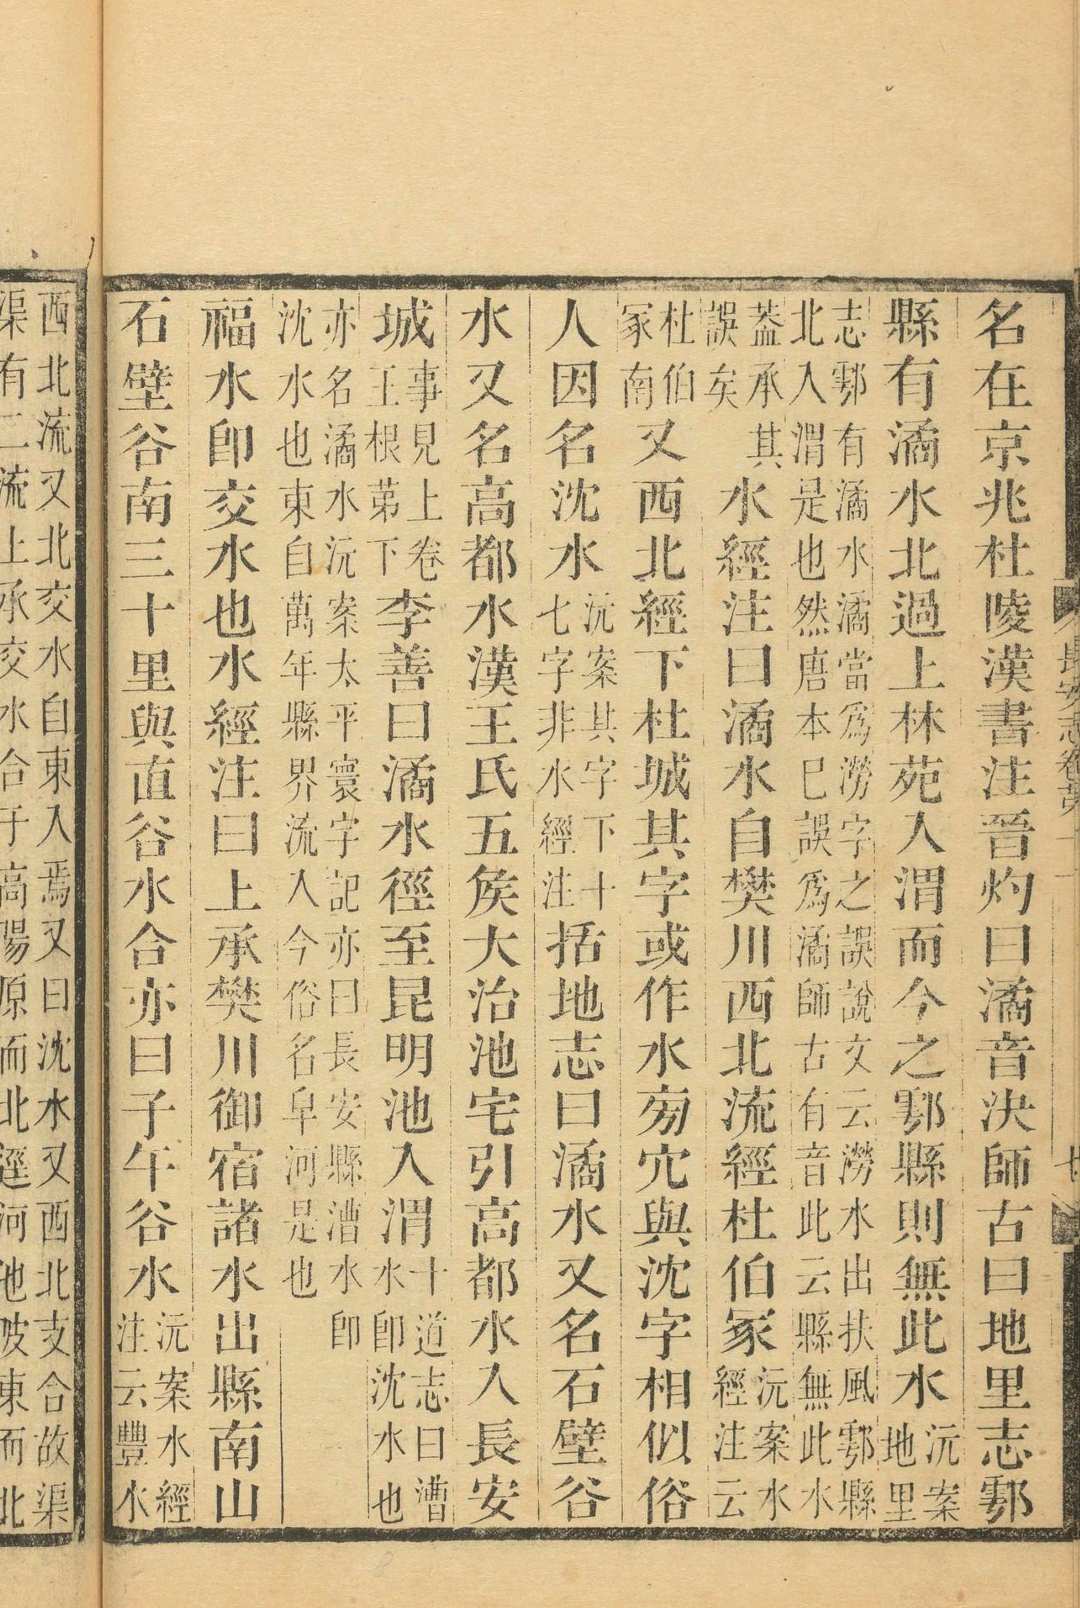 長安志卷
名在京兆杜陵漢書注晉灼曰潏音決師古曰地里志鄠
縣有潏水北過上林苑入渭而今之鄠縣則無此水沅案地里
志鄠有潏水潏當爲澇字之誤說文云澇水出扶風鄠縣
北入渭是也然唐本已誤爲潏師古有音此云縣無此水
蓋承其誤矣水經注曰潏水自樊川西北流經杜伯冢沅案水經注云
杜伯冢南又西北經下杜城其字或作水旁穴與沈字相似俗
人因名沈水沅案其字下十七字非水經注括地志曰潏水又名石壁谷
水又名高都水漢王氏五侯大治池宅引高都水入長安
城事見上卷王根苐下李善曰潏水徑至昆明池入渭十道志曰漕水卽沈水也
亦名潏水沅案太平寰宇記亦曰長安縣漕水卽
沈水也東自萬年縣界流入今俗名皁河是也
福水卽交水也水經注曰上承樊川御宿諸水出縣南山
石壁谷南三十里與直谷水合亦曰子午谷水沅案水經注云豐水
西北流又北交水自東入焉又曰沈水又西北支合故渠
渠有二流上承交水合于高陽原而北逕河池陂東而北